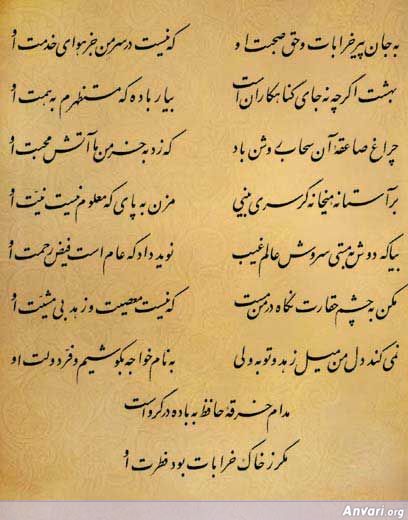 به جان پیر خرابات و حق صحبت او که نیست در سر من جز هوای خدمت او
بهشت اگرچه نه جای گناهکاران است بیار باده که مستظهرم به همت او
چراغ صاعقهٔ آن سحابی روشن باد که زد به خرمن ما آتش محبت او
بر آستانه میخانه گر سری بینی مزن به پای که معلوم نیست نیّت او
بیا که دوش به مستی سروش عالم غیب نوید داد که عام است فیض رحمت او
مکن به چشم حقارت نگاه در من مست که نیست معصیت و زهد بی مشیّت او
نمی کند دل من میل زهد و توبه ولی به نام خواجه بکوشیم و فرّ دولت او
مدام خرقهٔ حافظ به باده در گرو است
مگر ز خاک خرابات بود فطرت او
Anvari.org